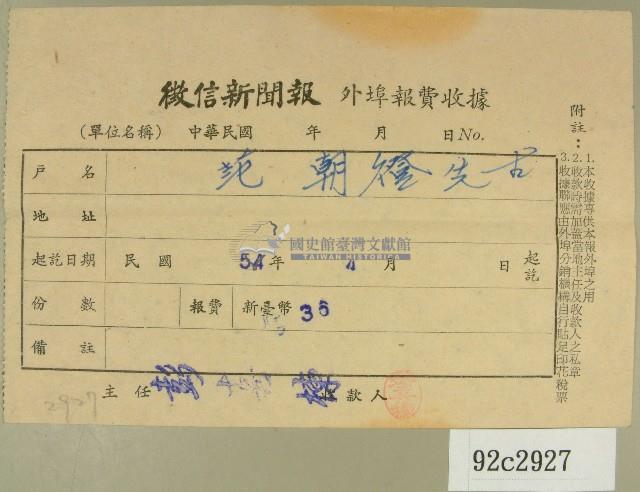 徵信新聞報 外埠報費收據
(單位名稱) 中華民國 年 月 日 No.
戶名 范朝燈先
地址
起訖日期 民國 54年 月 日 起訖
份數 報費 新臺幣 36
備註
主任 彭 收款人
附註：
1.本收據專供本報外埠之用
2.收款時需加蓋當地主任及收款人之私章
3.收據聯應由外埠分銷機構自行貼足印花稅票
國史館臺灣文獻館
TAIWAN HISTORICA
2927
92c2927